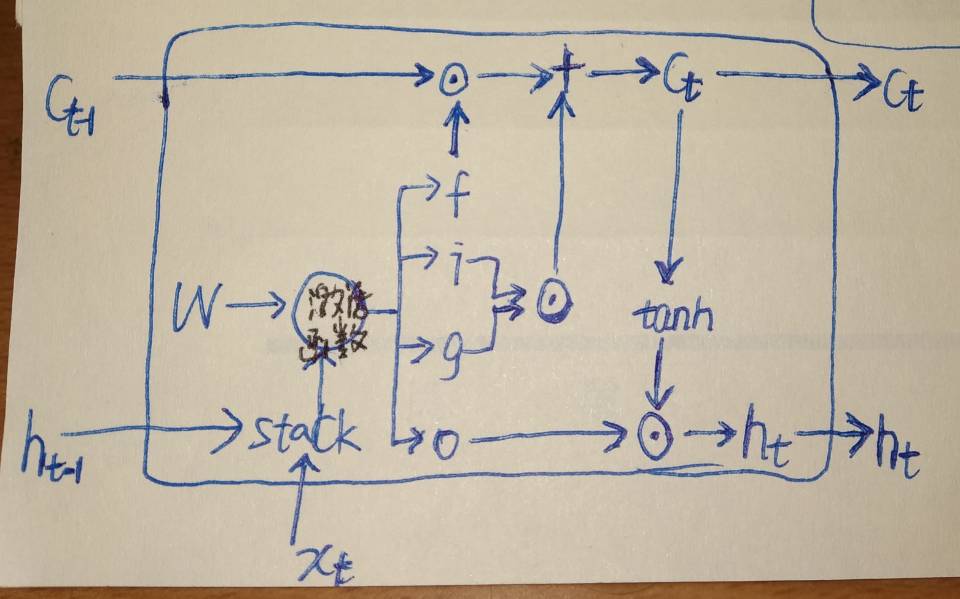 C_{t-1} ⊙ + C_t C_t
f
i
W 激活函数 ⊙ tanh
g
h_{t-1} stack o ⊙ h_t h_t
x_t